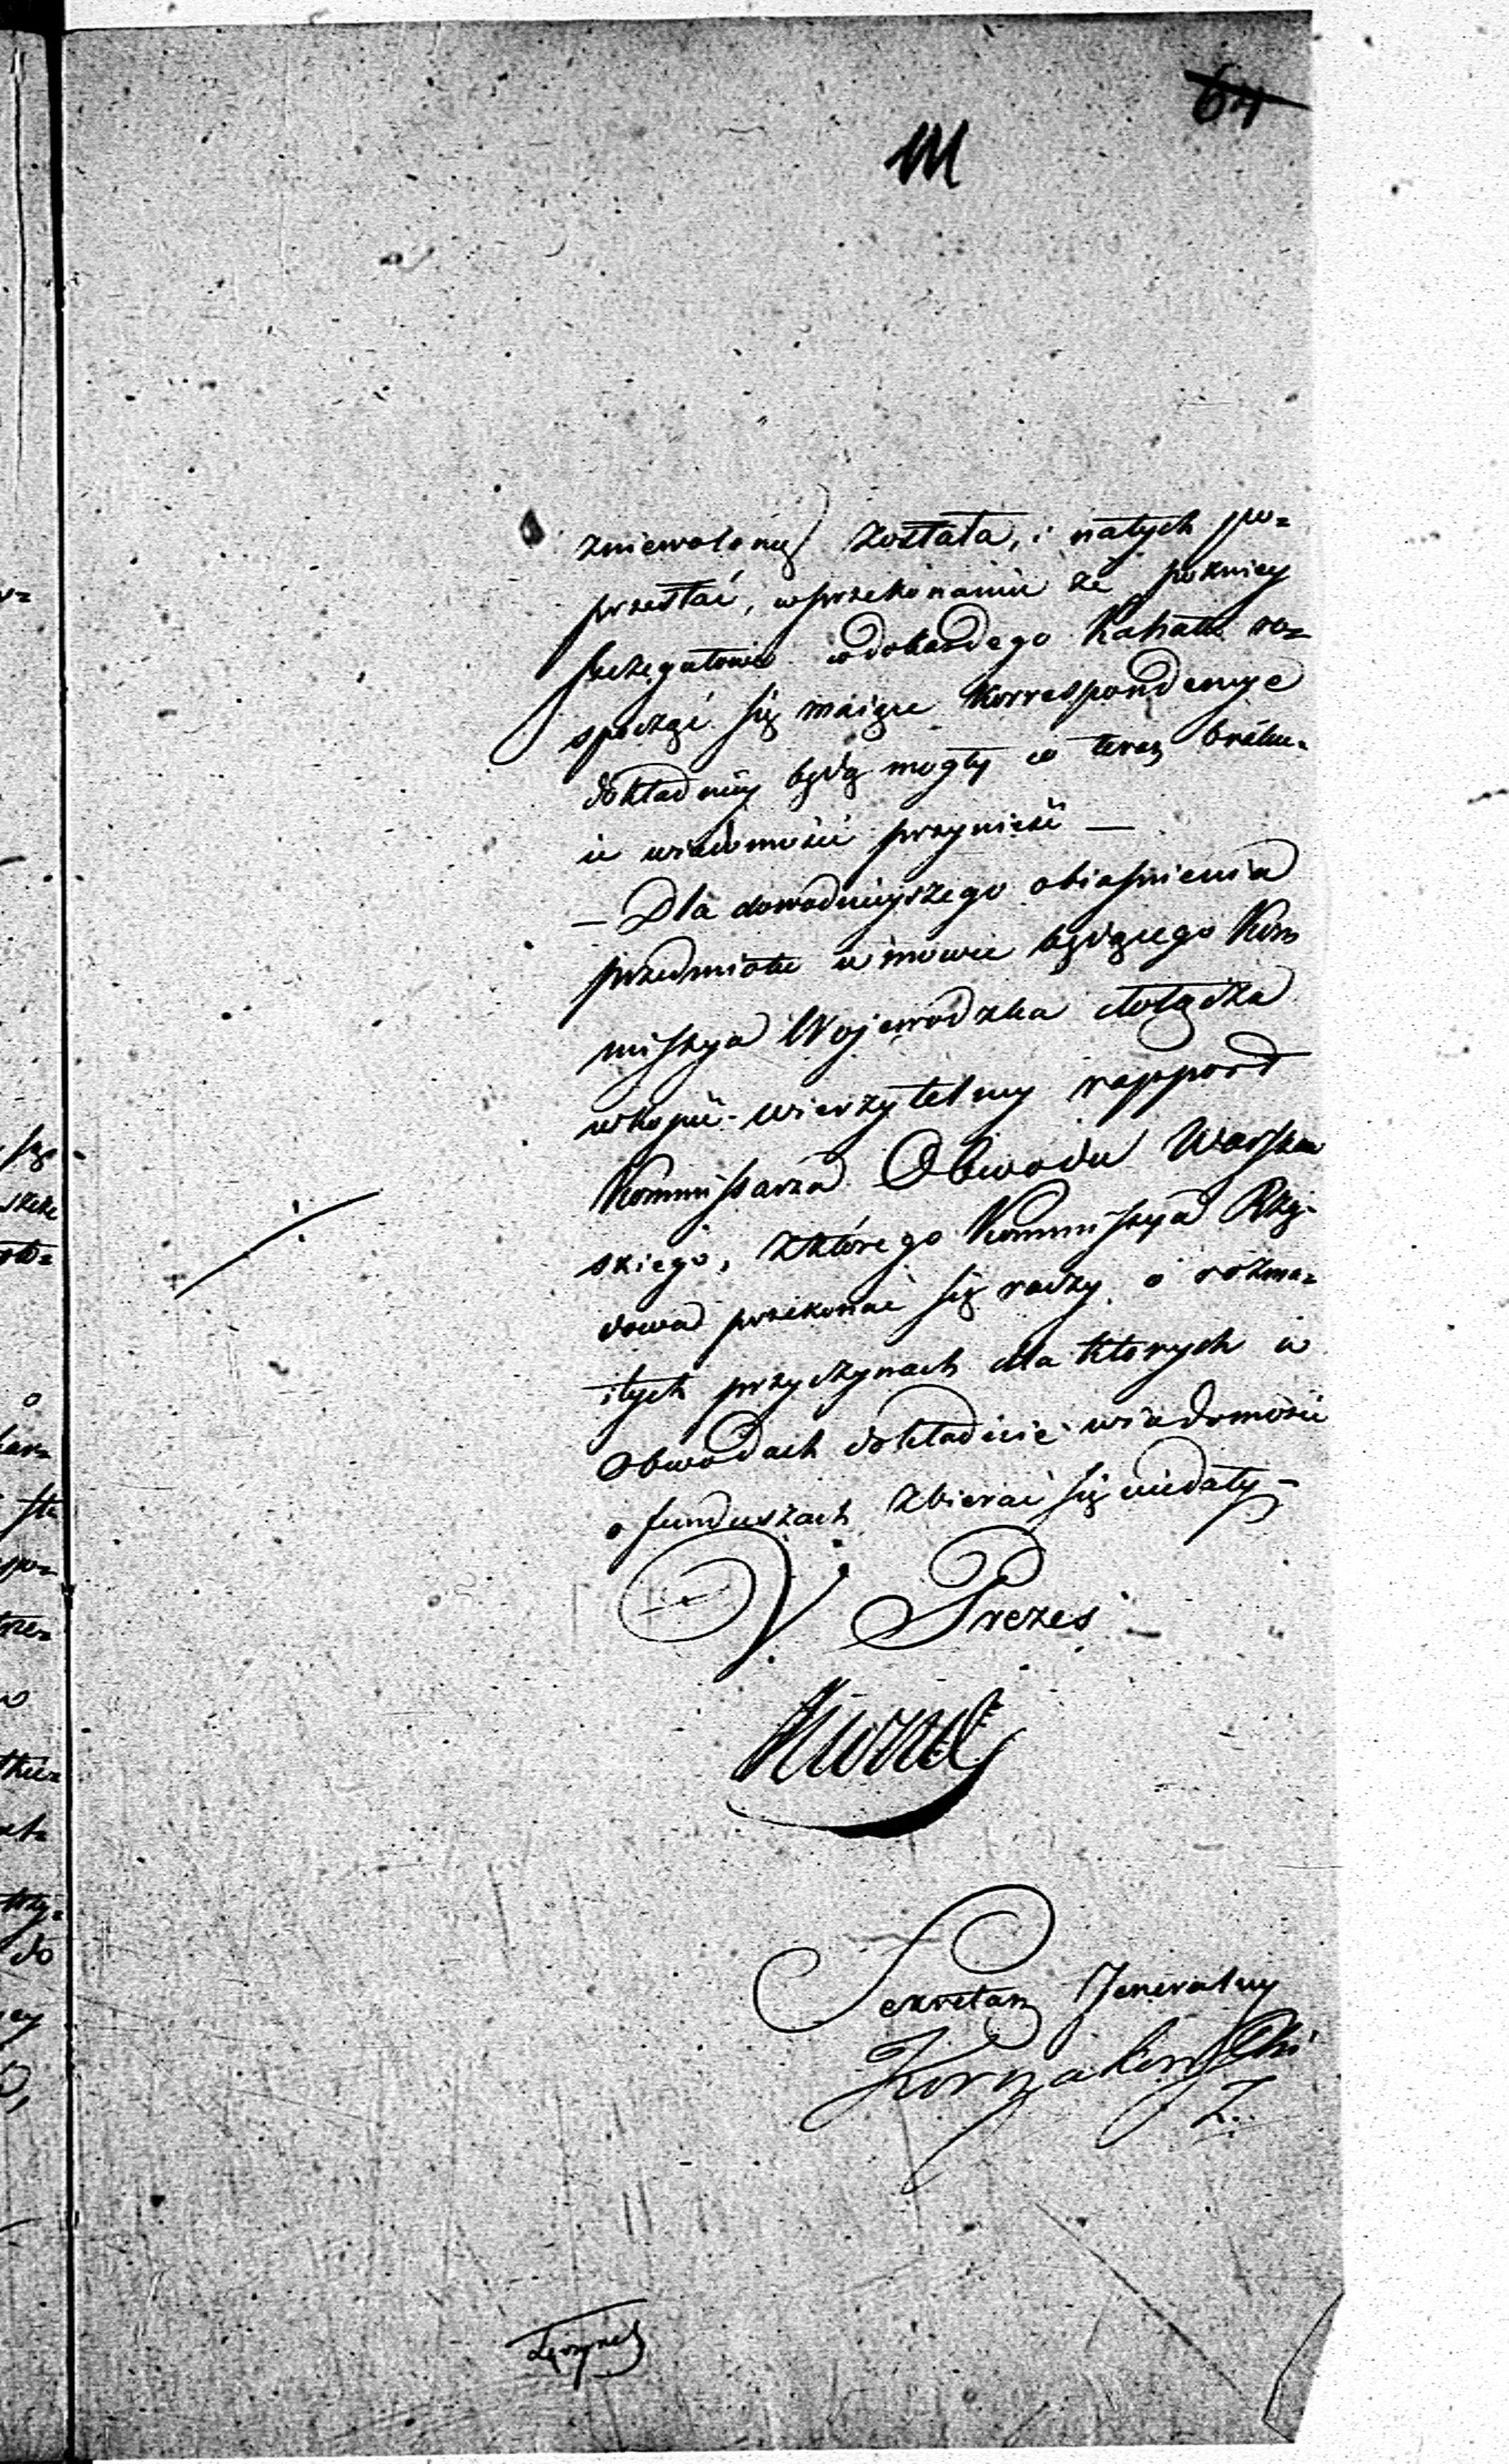 64
111
zniewoloną została, i natych po=
przestać, w przekonaniu że pozniey
szczegułowe codokażdego Kahału ro=
spocząć się maiące Korrespondencye
dokładniey będą mogły co teraz braku=
ie wiadomości przynieść —
— Dla dowodnieyszego obiaśnienia
przedmiotu w mowie będącego Kom
missya Wojewodzka dołącza
w kopii wierzytelney rapport
Kommissarza Obwodu Warszaw
skiego, z którego Kommissya Rzą=
dowa przekonać się raczy o rozma=
itych przyczynach dla ktorych w
Obwodach dokładnie wiadomości
o funduszach zbierać się niedały —
V. Prezes
Sekretarz Jeneralny